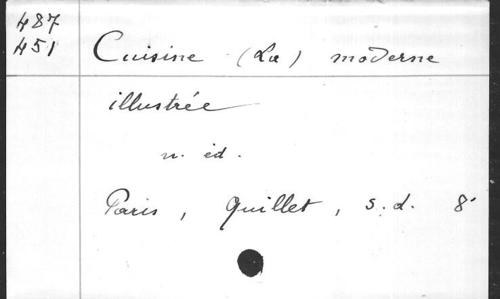 487
451
Cuisine (La) moderne
illustrée
n. éd.
Paris, Quillet, s.d. 8°